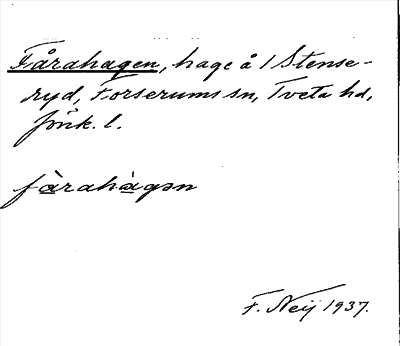 Fårahagen, hage å 1 Stense-
ryd, Forserums sn, Tveta hd,
Jönk. l.
fàrahàgən
F. Neij 1937.